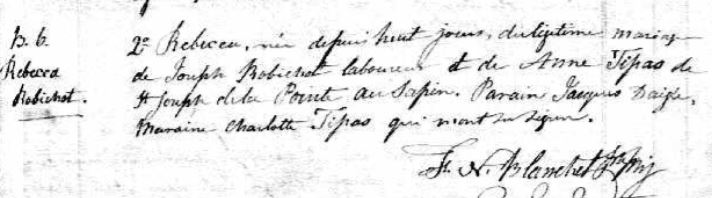 B. 6.
Rebecca
Robichot.
2º Rebecca, née depuis huit jours, du légitime mariage
de Joseph Robichot laboureur & de Anne Tipas de
St Joseph de la Pointe au Sapin. Parain Jacques Daigle,
Maraine Charlotte Tipas qui n'ont su signer.
Fr. N. Blanchet